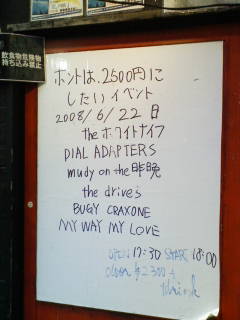 飲食物危険物
持ち込み禁止
ホントは、2500円に
したいイベント
2008/6/22 日
the ホワイトナイフ
DIAL ADAPTERS
mudy on the 昨晩
the drive's
BUGY CRAXONE
MY WAY MY LOVE
OPEN 17:30 START 18:00
¥2300 +
1drink